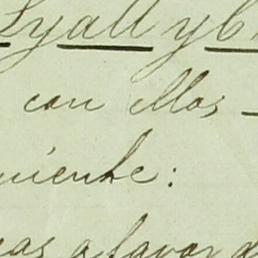 Lyall y C
con ellos
niente:
a favor d